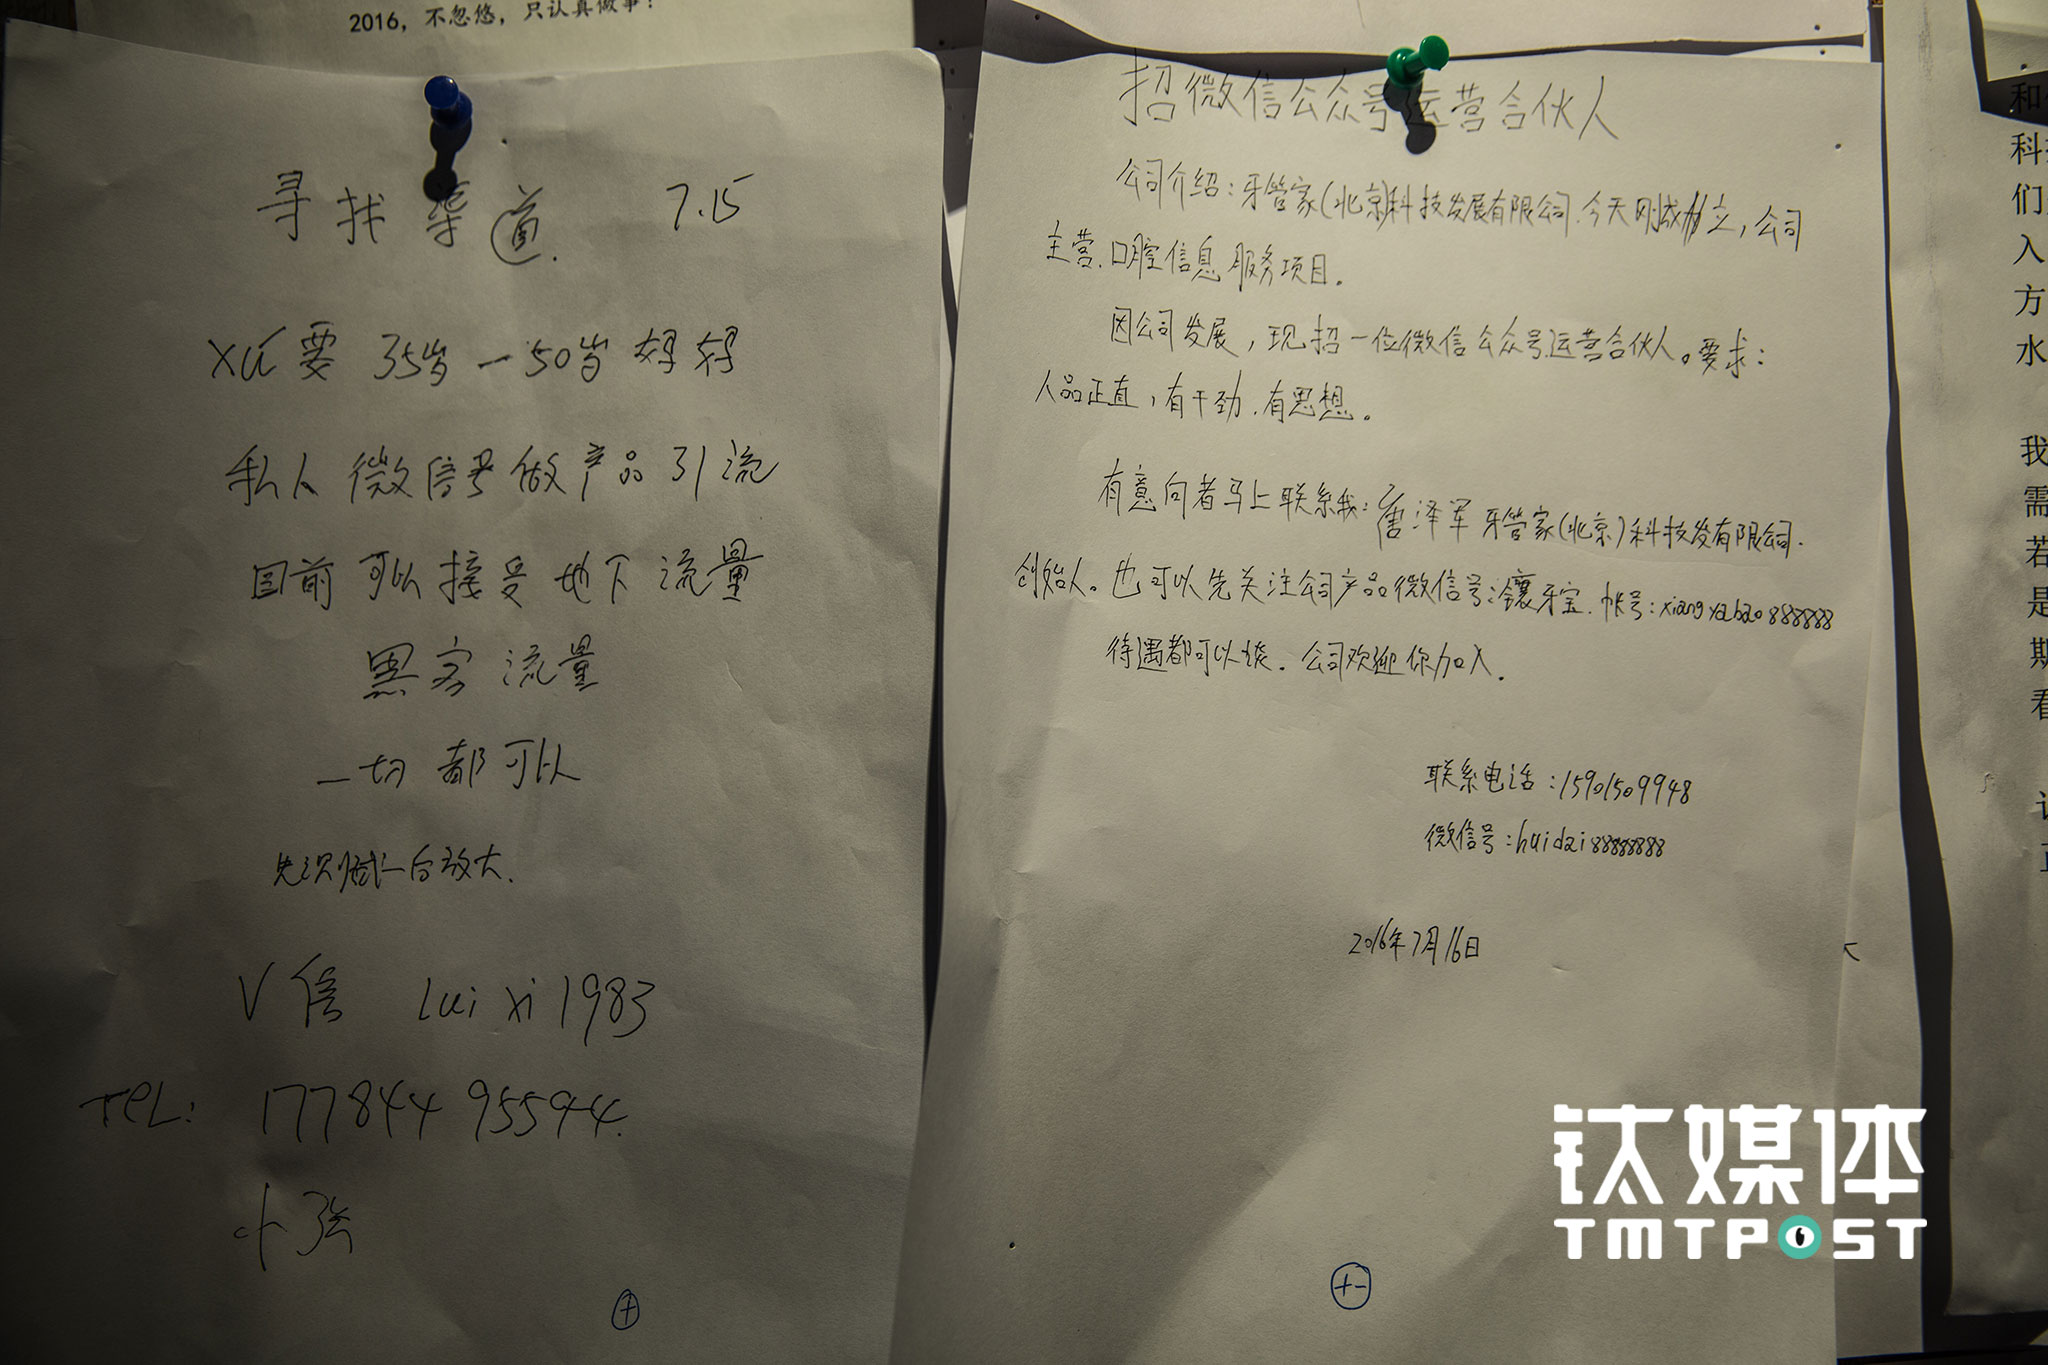 2016，不忽悠，只认真做事！
寻找渠道. 7.15
XU要 35岁—50岁 好好
私人 微信号 做产品引流
目前可以接受地下流量
黑客流量
一切都可以
先测试一后放大.
V信 lui xi 1983
TEL: 177844 95594
小张
招微信公众号运营合伙人
公司介绍：牙管家(北京)科技发展有限公司.今天刚成立，公司
主营.口腔信息服务项目.
因公司发展，现招一位微信公众号运营合伙人。要求：
人品正直，有干劲.有思想。
有意向者马上联系我：唐泽军 牙管家(北京)科技发有限公司.
创始人。也可以先关注公司产品微信号:镶牙宝.帐号：xiangyabao888888
待遇都可以谈. 公司欢迎你加入.
联系电话：15901509948
微信号：huidai88888888
2016年7月16日
科
们
入
方
水
我
需
若
是
期
看
钛媒体
TMTPOST